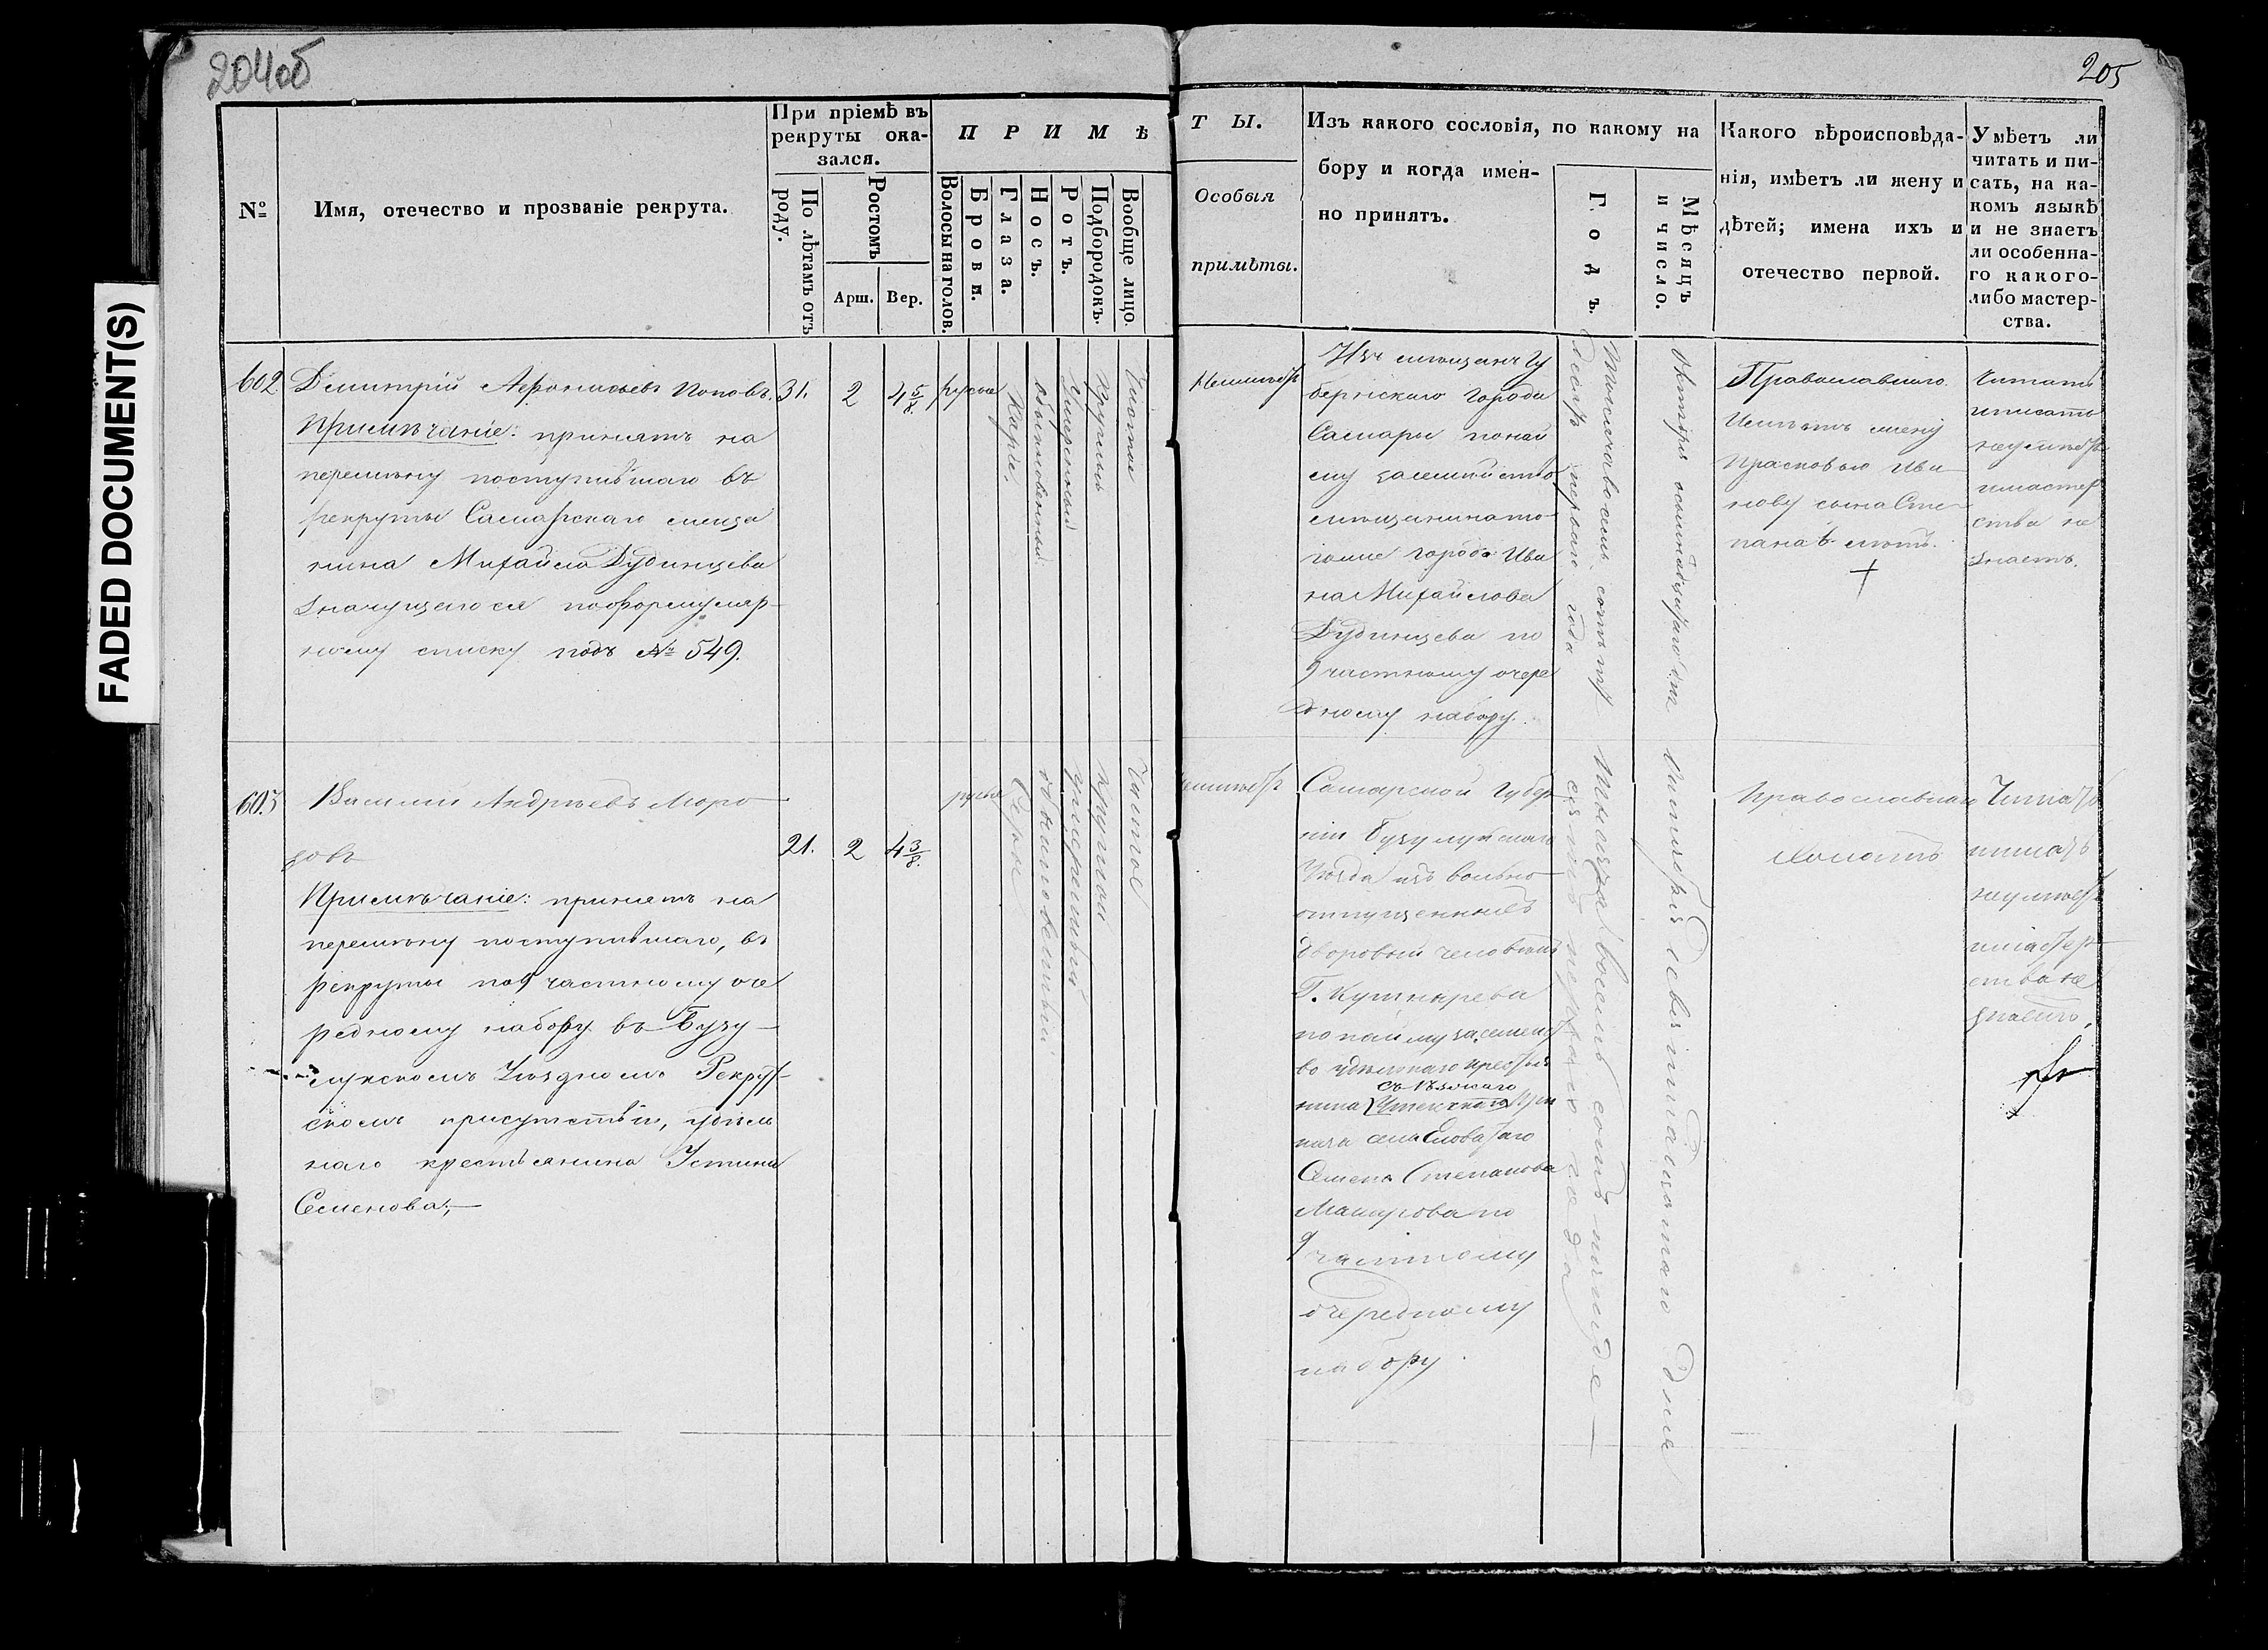 204об
205
FADED DOCUMENT(S)
№
Имя, отечество и прозваніе рекрута.
При пріемѣ въ
рекруты ока-
зался.
По лѣтамъ отъ
роду.
Ростомъ
Арш.
Вер.
ПРИМѢ
Волосы на голов.
Брови.
Глаза.
Носъ.
Ротъ.
Подбородокъ.
Вообще лицо.
ТЫ.
Особыя
примѣты.
Изъ какого сословія, по какому на
бору и когда имен-
но принятъ.
Годъ.
Мѣсяцъ
и число.
Какого вѣроисповѣда-
нія, имѣетъ ли жену и
дѣтей; имена ихъ и
отечество первой.
Умѣетъ ли
читать и пи-
сать, на ка-
комъ языкѣ
и не знаетъ
ли особенна-
го какого-
либо мастер-
ства.
602
Димитрій Афонасьевъ Поповъ.
Примѣчаніе: принятъ на
перемѣну поступившаго въ
рекруты Самарскаго мѣща
нина Михайла Дудинцева
значущагося по формуляр-
ному списку подъ № 549.
31.
2
4 5/8.
русые
Каріе.
обыкновенный
Умѣренный
Круглый
Чистое
Неимѣетъ
Изъ мѣщанъ Гу
бернскаго Города
Самары по най
му за семейство
мѣщанина то-
гоже города Ива
на Михайлова
Дудинцева по
9 частному очере
дному набору.
Тысяча восемь сотъ пят
десятъ перваго года
Октября осьмнадцатаго дня
Православнаго.
Имѣетъ жену
Прасковью Ива
нову сына Сте
пана 6 лѣтъ.
Читать
и писать
неумѣетъ
и мастер
ства не
знаетъ.
603
Василій Андреевъ Моро
зовъ
Примѣчаніе: принятъ на
перемѣну поступившаго, въ
рекруты по 9 частному оче
редному набору въ Бузу-
лукскомъ Уѣздномъ Рекрут-
скомъ присутствіи, удѣль
наго крестьянина Устина
Семенова;—
21.
2
4 3/8.
русые
Серые
обыкновенный
умѣренный
круглый
Чистое
неимѣетъ
Самарской Губер
ніи Бузулукскаго
Уѣзда изъ вольно
отпущенныхъ
дворовый человѣкъ
по найму за семейст
во удѣльнаго крестья
нина
каза села Еловатаго
Семена Степанова
по
9 частному
очередному
набору.
Тысяча восемь сотъ пятьде—
сятъ перваго года
Октября девятнадцатаго дня
Православнаго
холостъ
Читать
писать
неумѣетъ
и мастер
ства не
знаетъ,